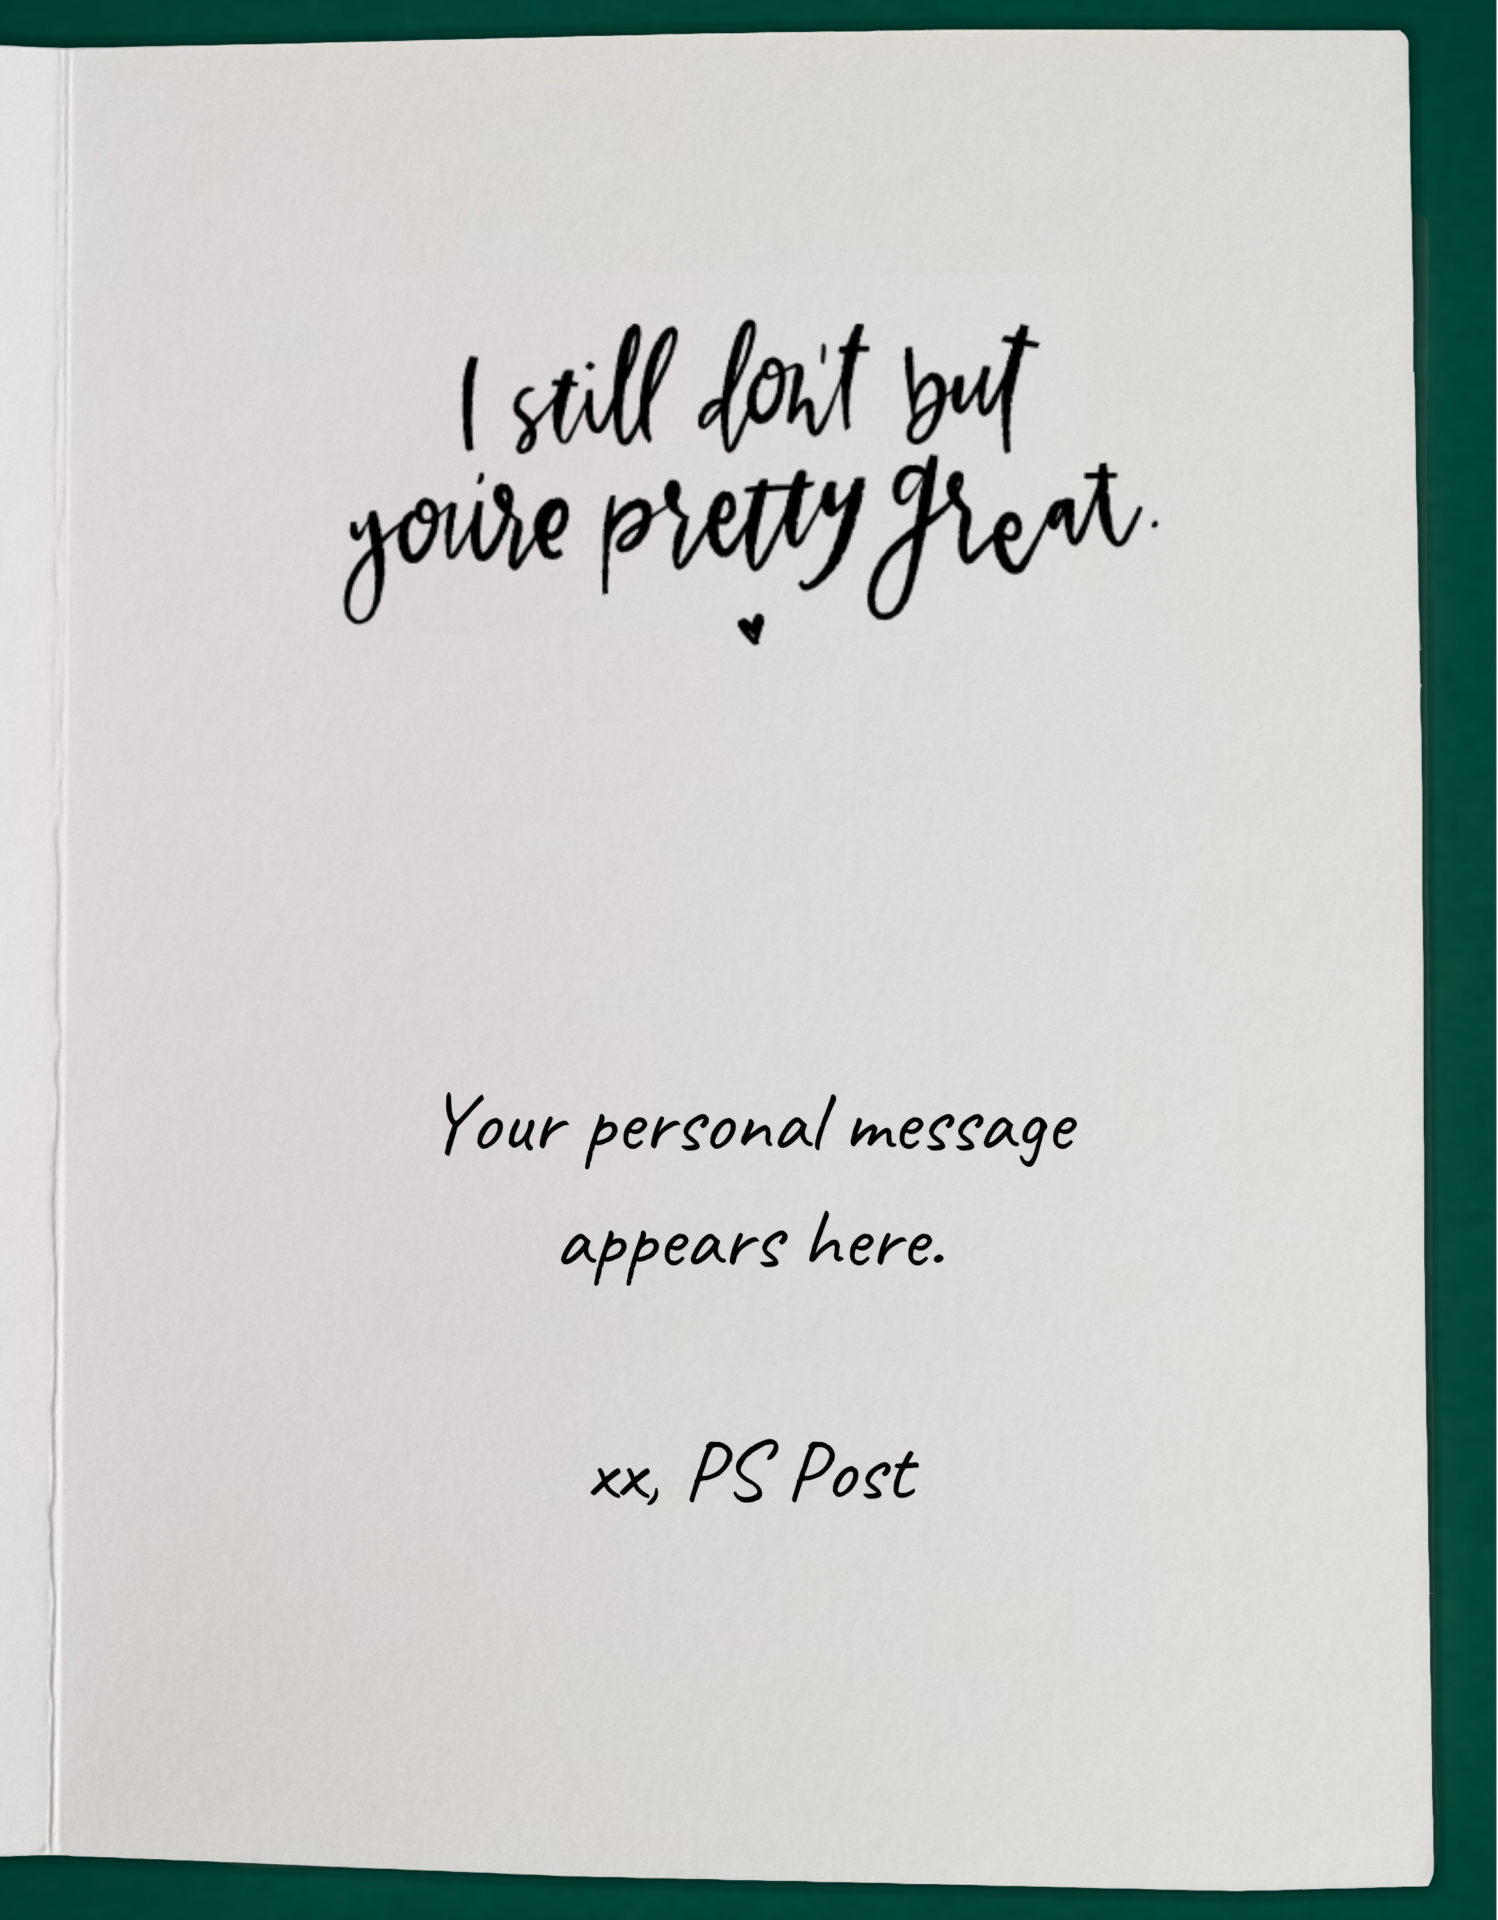 I still don't but
you're pretty great.
Your personal message
appears here.
xx, PS Post